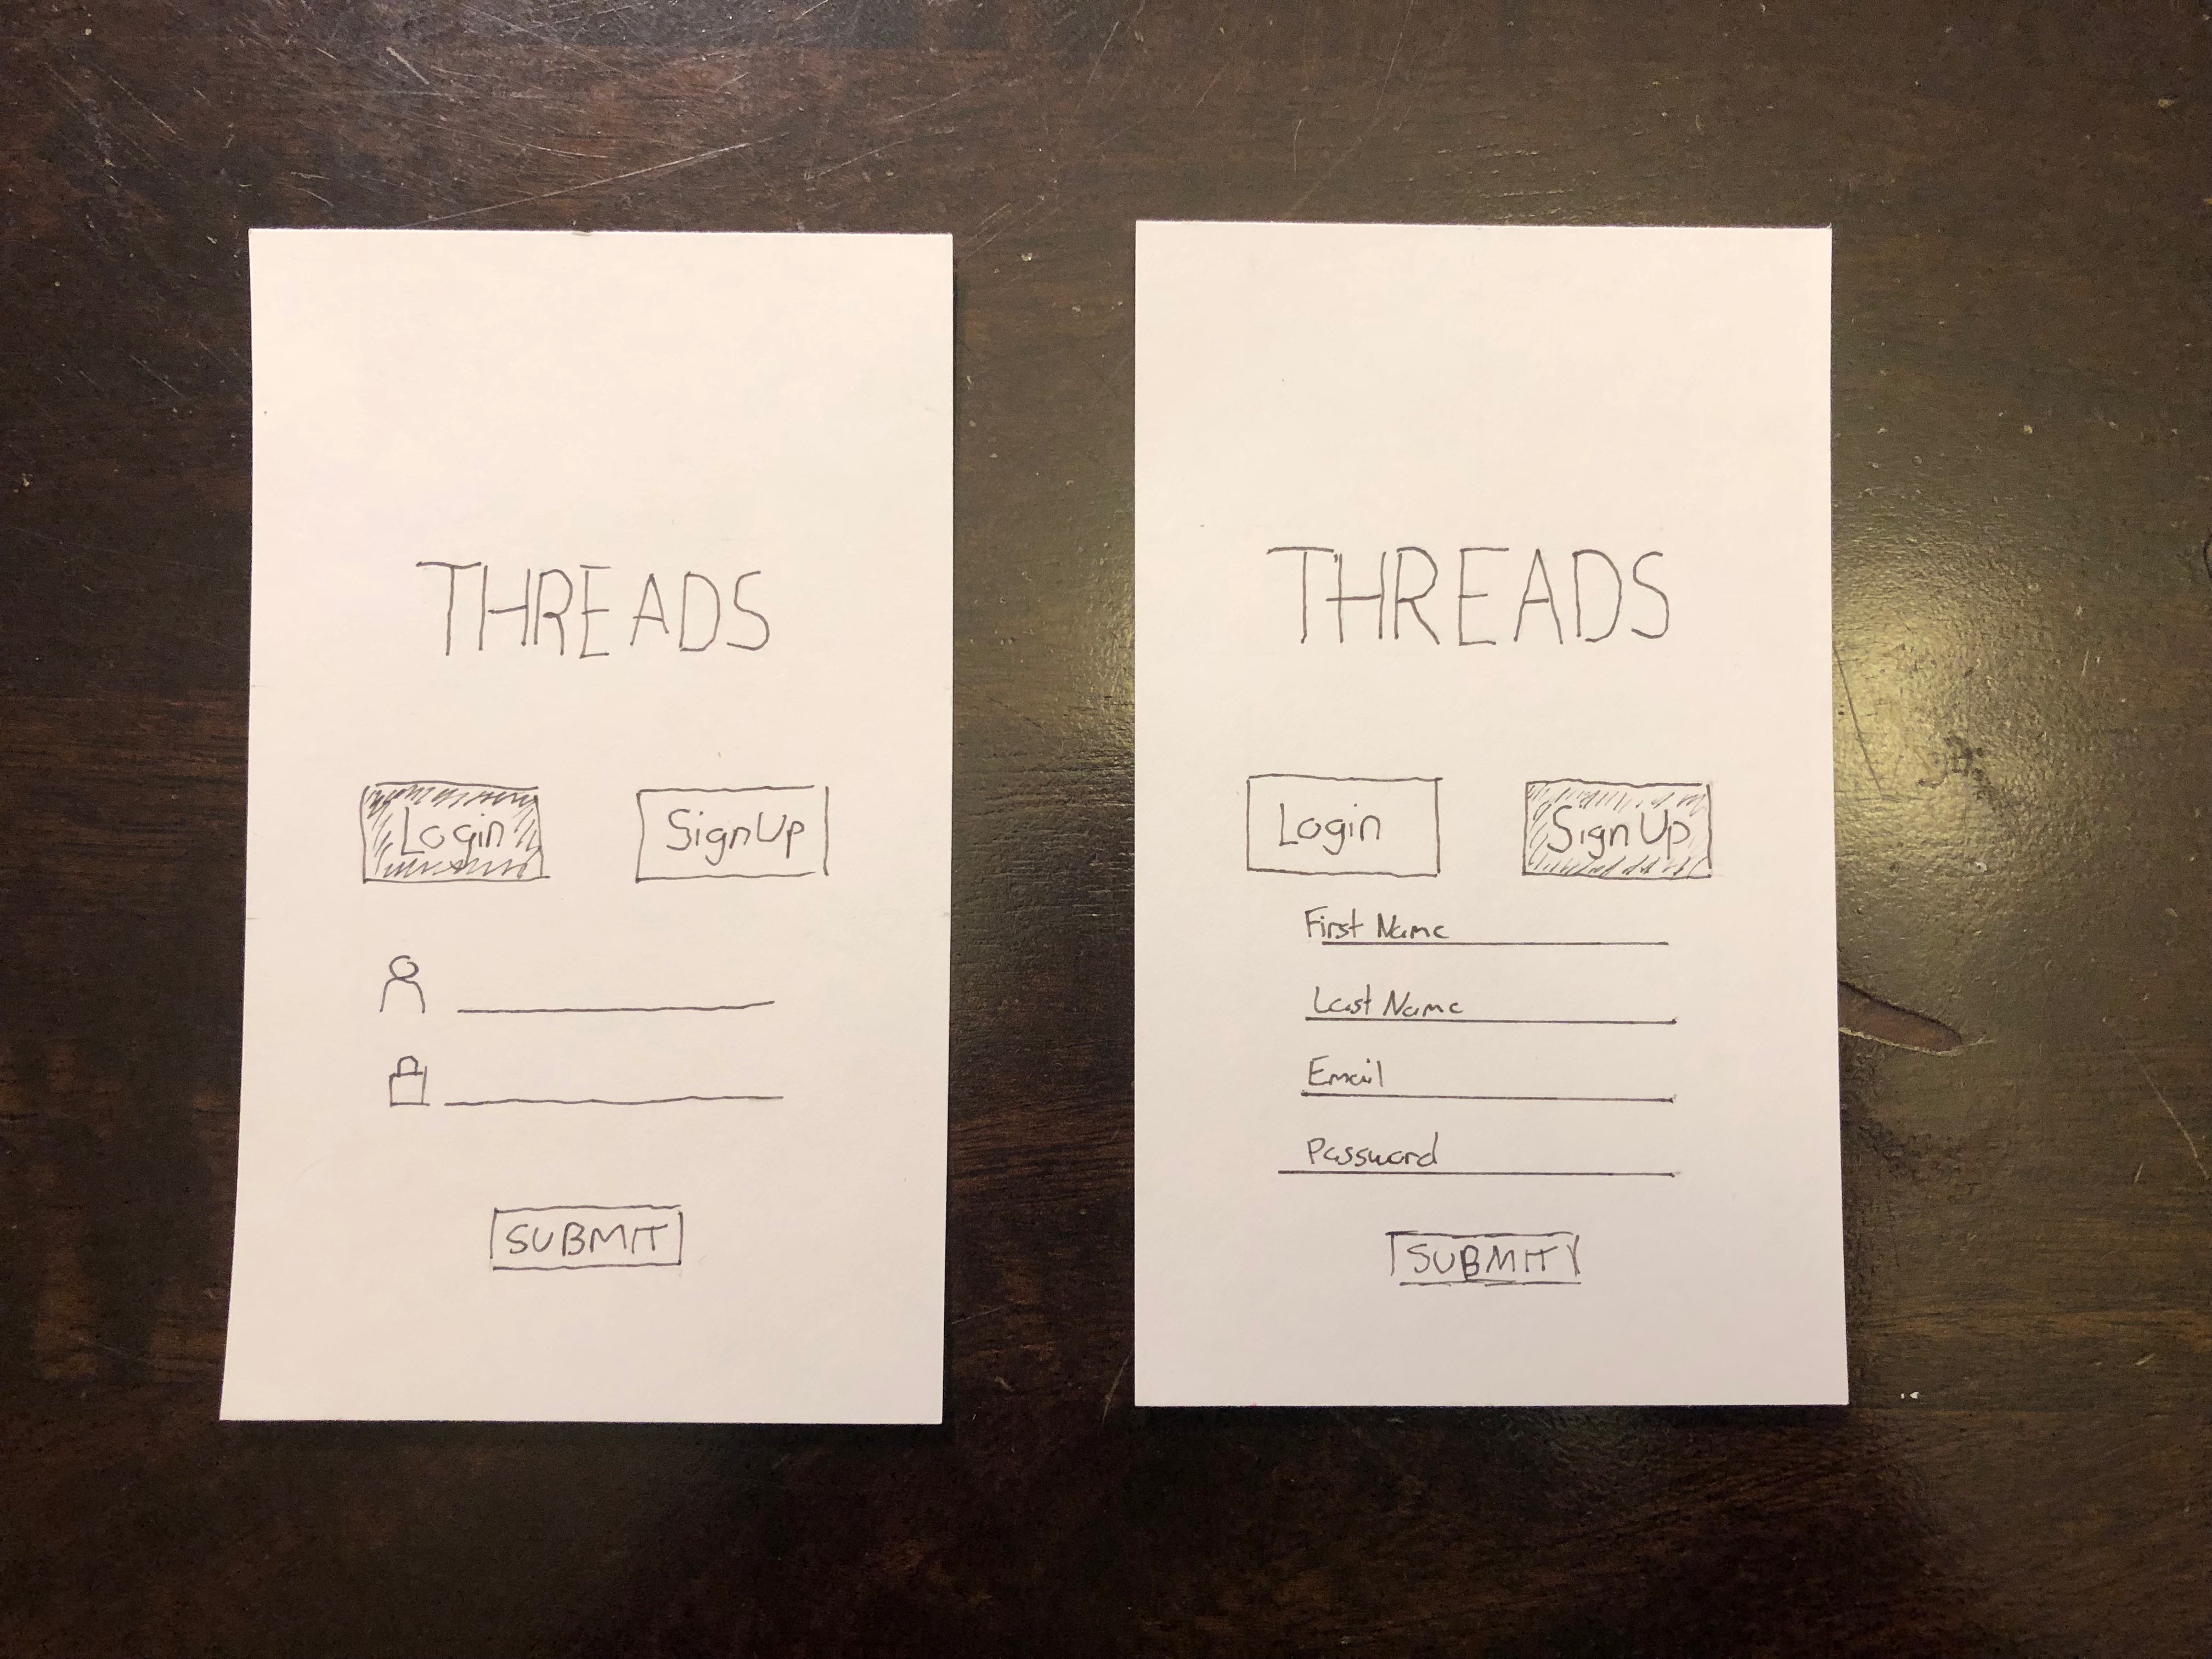 THREADS
Login SignUp
SUBMIT
THREADS
Login SignUp
First Name
Last Name
Email
Password
SUBMIT